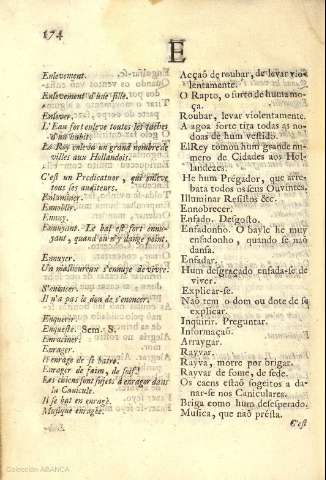 174
E
Enlevement.
Enlevement d'une fille.
Enlever.
L'Eau forte enleve toutes les taches d'un habit.
Le Roy enleva un grand nombre de villes aux Hollandois.
C'est un Predicateur, qui enleve tous ses auditeurs.
Enluminer.
Ennoblir.
Ennuy.
Ennuyant. Le bal est fort ennuyant, quand on n'y danse point.
Ennuyer.
Un malheureux s'ennuye de vivre.
S'enoncer.
Il n'a pas le don de s'enoncer.
Enquerir.
Enqueste. Sem. S.
Enraciner.
Enrager.
Il enrage de se batre.
Enrager de faim, de soif.
Les chiens sont sujets d'enrager dans la Canicule.
Il se bat en enragé.
Musique enragée.
Acçaõ de roubar, de levar violentamente.
O Rapto, o furto de huma moça.
Roubar, levar violentamente.
A agoa forte tira todas as nodoas de hum vestido.
ElRey tomou hum grande numero de Cidades aos Hollandezes.
He hum Prégador, que arrebata todos os seus Ouvintes.
Illuminar Resistos &c.
Ennobrecer.
Enfado. Desgosto.
Enfadonho. O bayle he muy enfadonho, quando se naõ dansa.
Enfadar.
Hum desgraçado enfada-se de viver.
Explicar-se.
Naõ tem o dom ou dote de se explicar.
Inquirir. Preguntar.
Informaçaõ.
Arraygar.
Rayvar.
Rayva, morre por brigar.
Rayvar de fome, de sede.
Os caens estaõ sogeitos a danar-se nos Caniculares.
Briga como hum desesperado.
Musica, que naõ présta.
C'est
Colección ABANCA